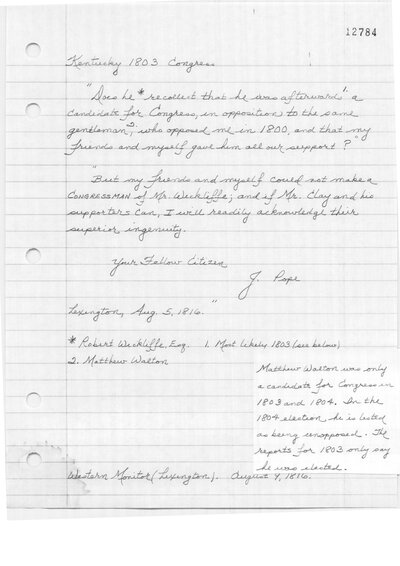 12784
Kentucky 1803 Congress
"Does he * recollect that he was afterward¹ a
candidate for Congress, in opposition to the same
gentleman², who opposed me in 1800, and that my
friends and myself gave him all our support?
"But my friends and myself could not make a
CONGRESSMAN of Mr. Wickliffe; and if Mr. Clay and his
supporters can, I will readily acknowledge their
superior ingenuity.
Your Fellow Citizen
J. Pope
Lexington, Aug. 5, 1816."
* Robert Wickliffe, Esq. 1. Most likely 1803 (see below)
2. Matthew Walton
Matthew Walton was only
a candidate for Congress in
1803 and 1804. In the
1804 election, he is listed
as being unopposed. The
reports for 1803 only say
he was elected.
Western Monitor (Lexington). August 9, 1816.